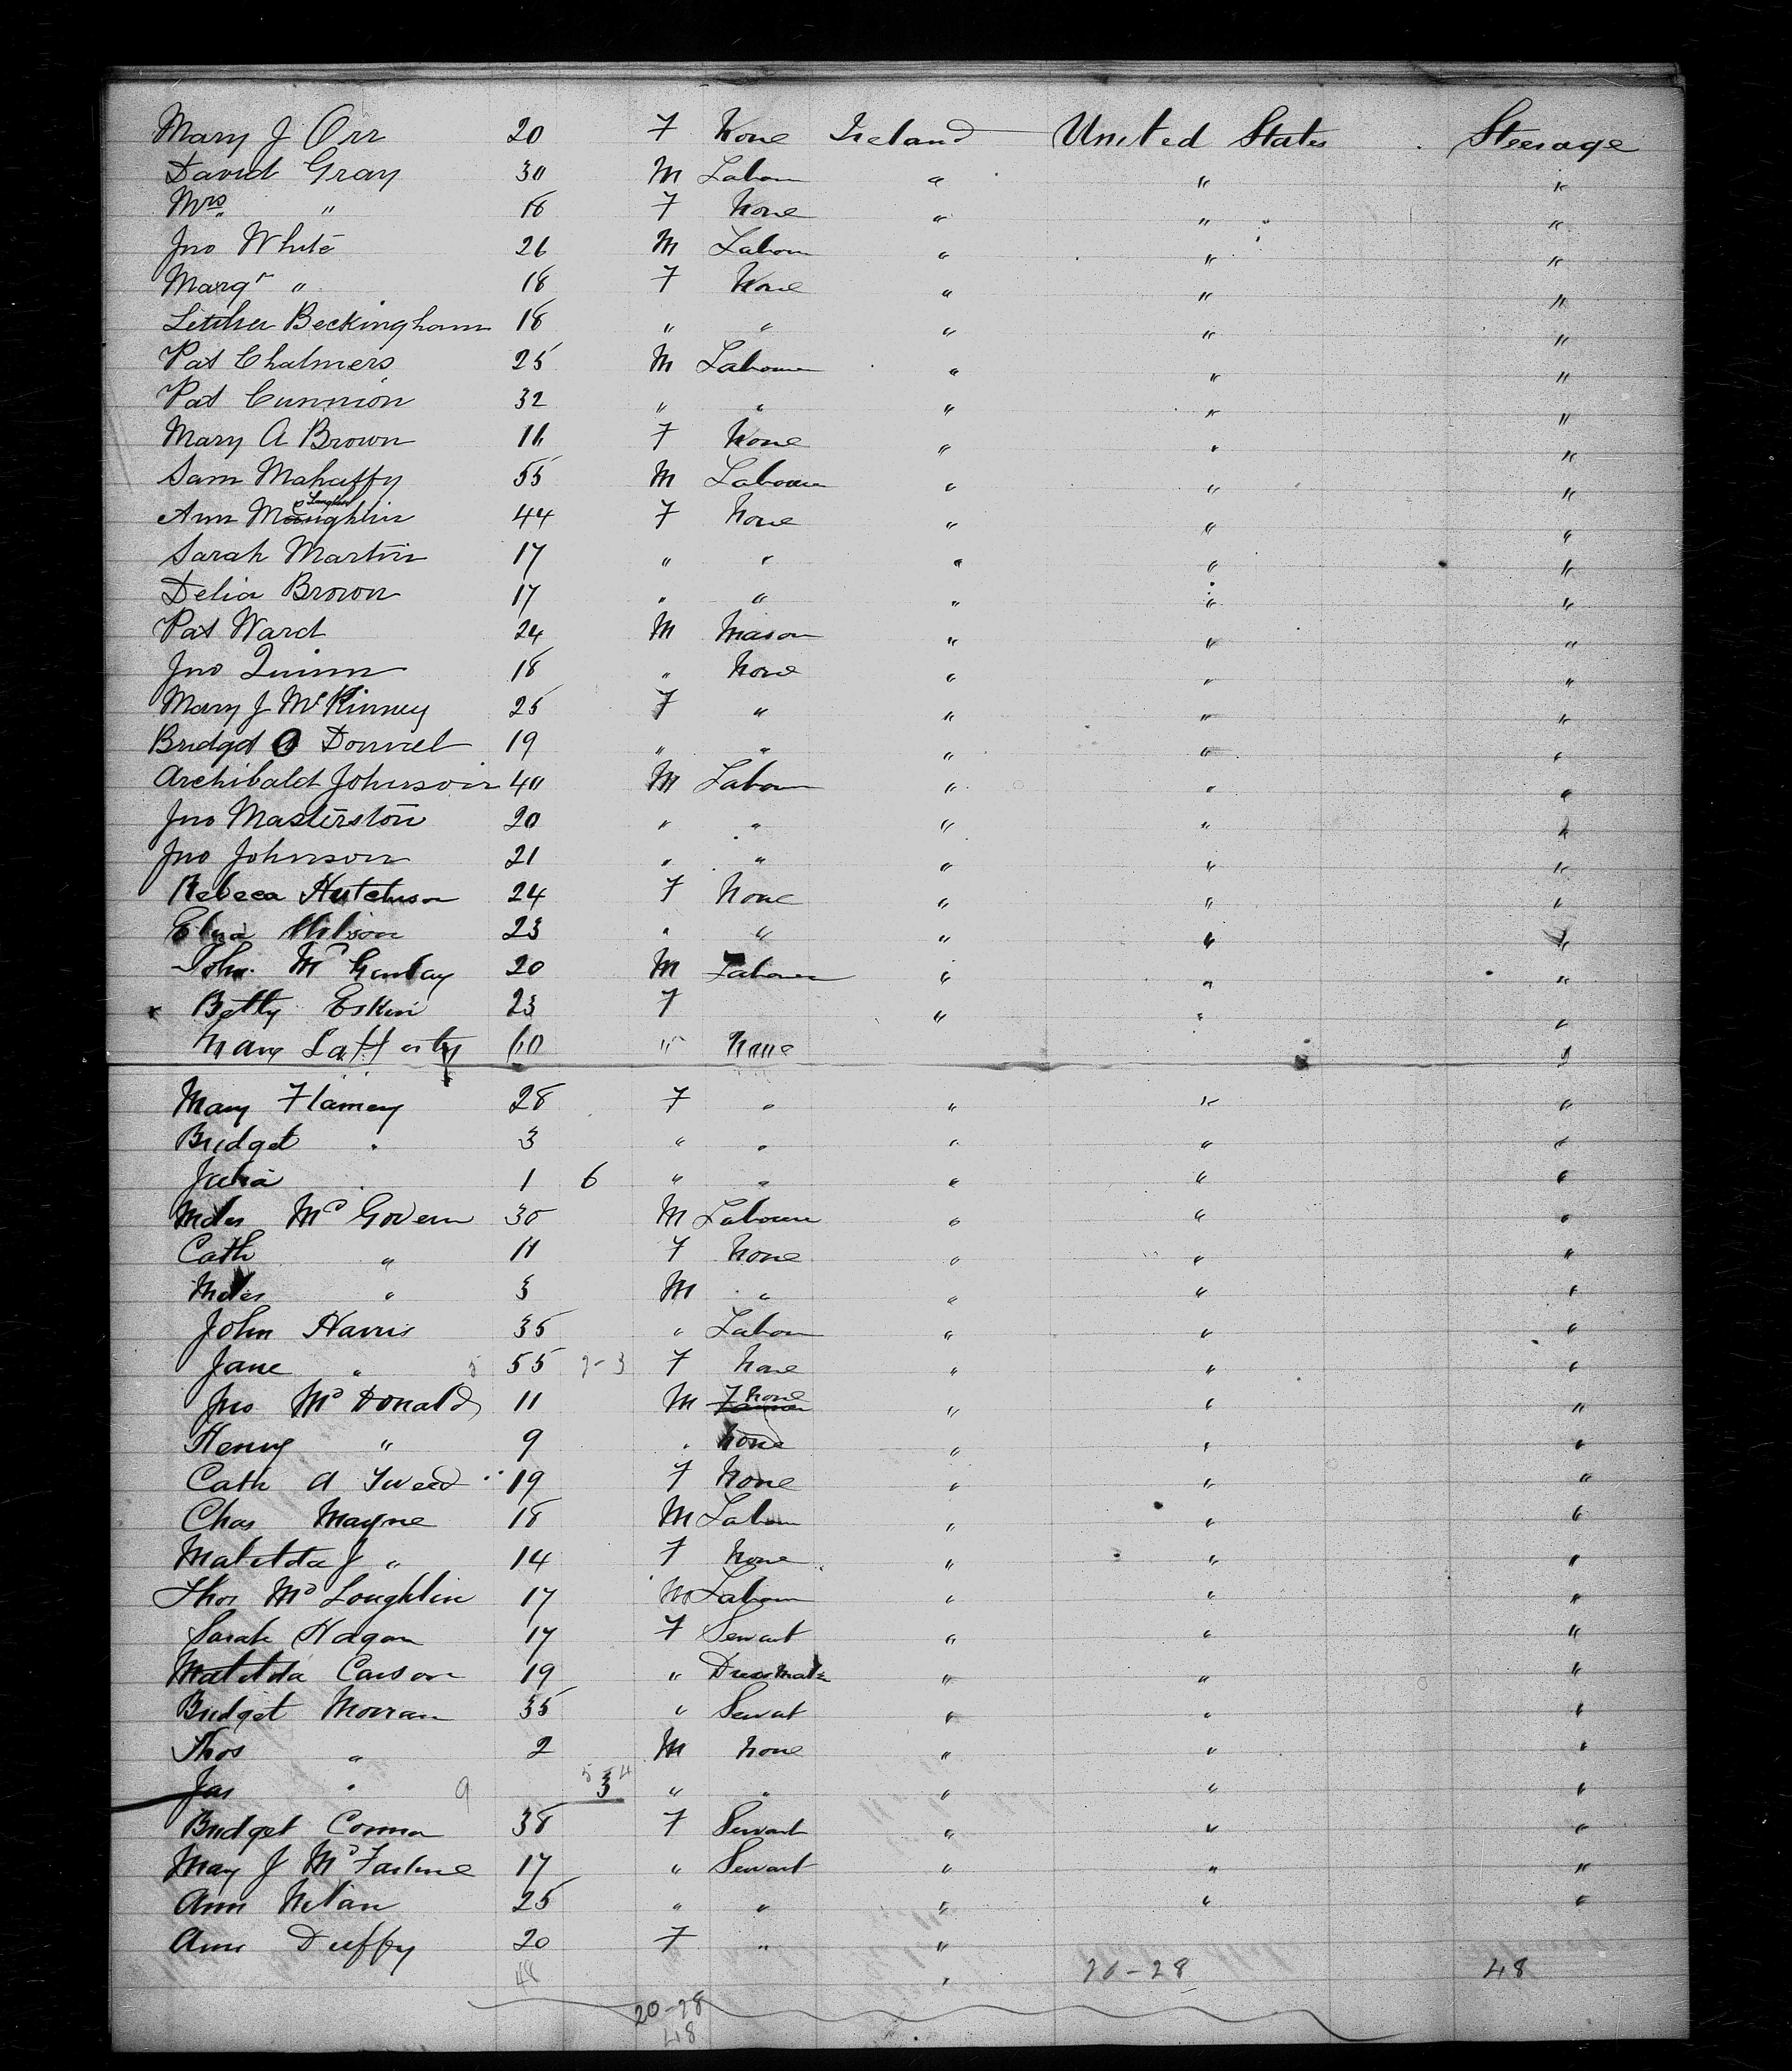 Mary J Orr 20 F None Ireland United States Steerage
David Gray 30 M Labour " " "
Mrs " 18 F None " " "
Jno White 26 M Labour " " "
Margt " 18 F None " " "
Letitia Beckingham 18 " " " " "
Pat Chalmers 25 M Labourer " " "
Pat Cunnion 32 " " " " "
Mary A Brown 16 F None " " "
Sam Mahaffy 55 M Labourer " " "
Ann Mc Laughlin 44 F None " " "
Sarah Martin 17 " " " " "
Delia Brown 17 " " " " "
Pat Ward 24 M Mason " " "
Jno Quinn 18 " None " " "
Mary J McKinney 25 F " " " "
Bridget O Donnel 19 " " " " "
Archibald Johnson 40 M Labour " " "
Jno Masterston 20 " " " " "
Jno Johnson 21 " " " " "
Rebeca Hutchison 24 F None " " "
Eliza Wilson 23 " " " " "
John Mc 20 M Labourer " " "
x Betty Eskin 23 F " " "
Mary Lafferty 60 " None "
Mary Flaminy 28 F " " " "
Bridget " 3 " " " " "
Julia 1 6 " " " " "
Miles Mc Govern 30 M Labourer " " "
Cath " 11 F None " " "
Miles " 3 M " " " "
John Harris 35 " Labour " " "
Jane " 5 55 F None " " "
Jno Mc Donald 11 M None " " "
Henry " 9 " None " " "
Cath A Tweed 19 F None " " "
Chas Mayne 18 M Labour " " "
Matilda J " 14 F None " " "
Thos Mc Loughlin 17 M Labour " " "
Sarah Hagan 17 F Servant " " "
Matilda Carson 19 " Dressmak " " "
Bridget Morran 35 " Servant " " "
Thos " 2 M None " " "
Jas " 9 5 3 4 " " " " "
Bridget Connor 38 F Servant " " "
Mary J Mc Farlane 17 " Servant " " "
Ann Nilan 25 " " " " "
Ann Duffy 20 F " "
48 " 20-28 48
20-28
48